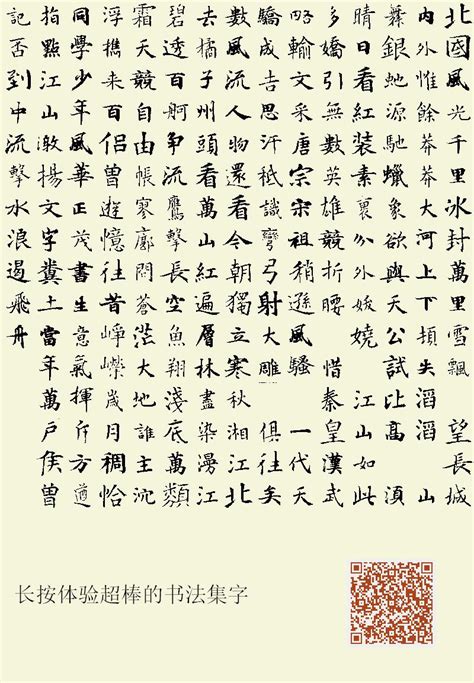 北國風光千里冰封萬里雪飄 望長城
内外惟餘莽莽大河上下頓失滔滔 山
舞銀蛇源馳蠟象欲與天公試比高 須
晴日看紅装素裹分外妖嬈 江山如此
多嬌引無數英雄競折腰 惜秦皇漢武
略輸文采唐宗宋祖稍遜風騷 一代天
驕成吉思汗祗識彎弓射大雕 俱往矣
數風流人物還看今朝獨立寒秋湘江北
去橘子州頭看萬山紅遍層林盡染漫江
碧透百舸争流鷹擊長空魚翔淺底萬類
霜天競自由帳寥廓問蒼茫大地誰主沈
浮攜来百侣曾遊憶往昔崢嶸歲月稠恰
同學少年風華正茂書生意氣揮斥方遒
指點江山激揚文字糞土當年萬戶侯曾
記否到中流擊水浪遏飛舟
长按体验超棒的书法集字